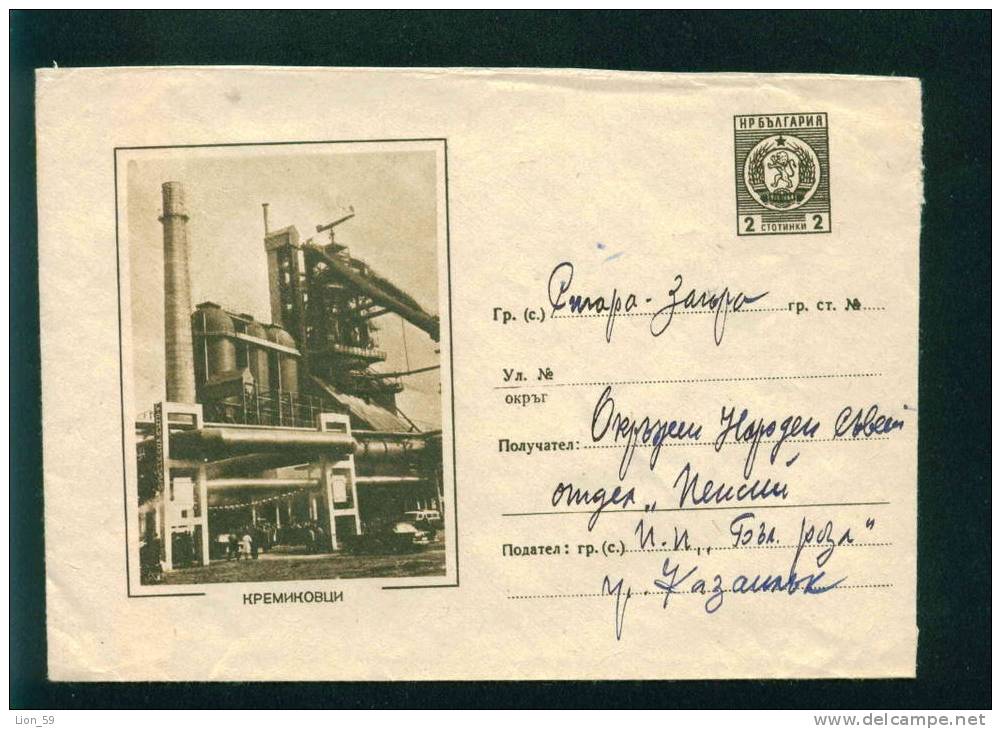 НР БЪЛГАРИЯ
2 СТОТИНКИ 2
Гр. (с.) Стара - Загора гр. ст. №
Ул. №
окръг
Получател: Окръжен Народен Съвет
отдел „Пенсии
Подател: гр. (с.) П.п. „Бъл. роза"
гр. Казанлък
КРЕМИКОВЦИ
Lion_59
www.delcampe.net